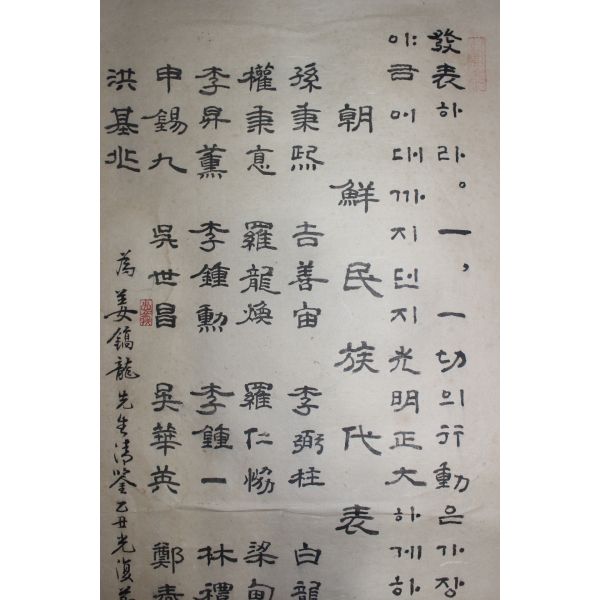 發表하라。一, 一切의行動은가장
야금어대까지던지光明正大하게하
朝鮮民族代表
孫秉熙 吉善宙 李弼柱 白龍
權秉悳 羅龍煥 羅仁協 梁甸
李昇薰 李鍾勳 李鍾一 林禮
申錫九 吳世昌 吳華英 鄭春
洪基兆
為姜鎬龍先生清鑒乙丑光復